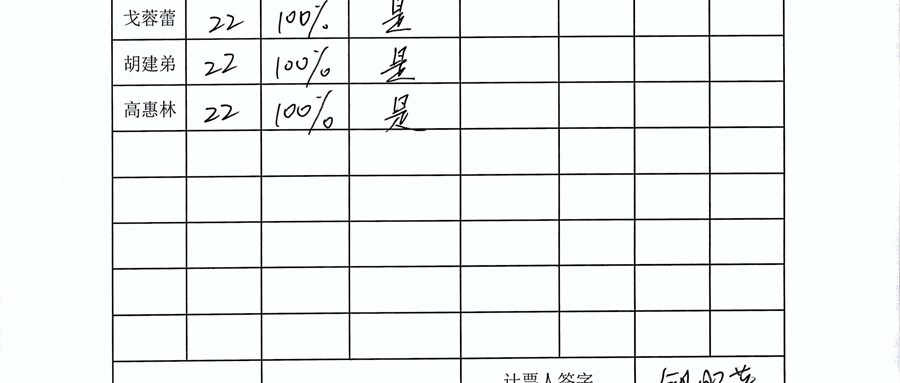 戈蓉蕾 22 100% 是
胡建弟 22 100% 是
高惠林 22 100% 是
计票人签字